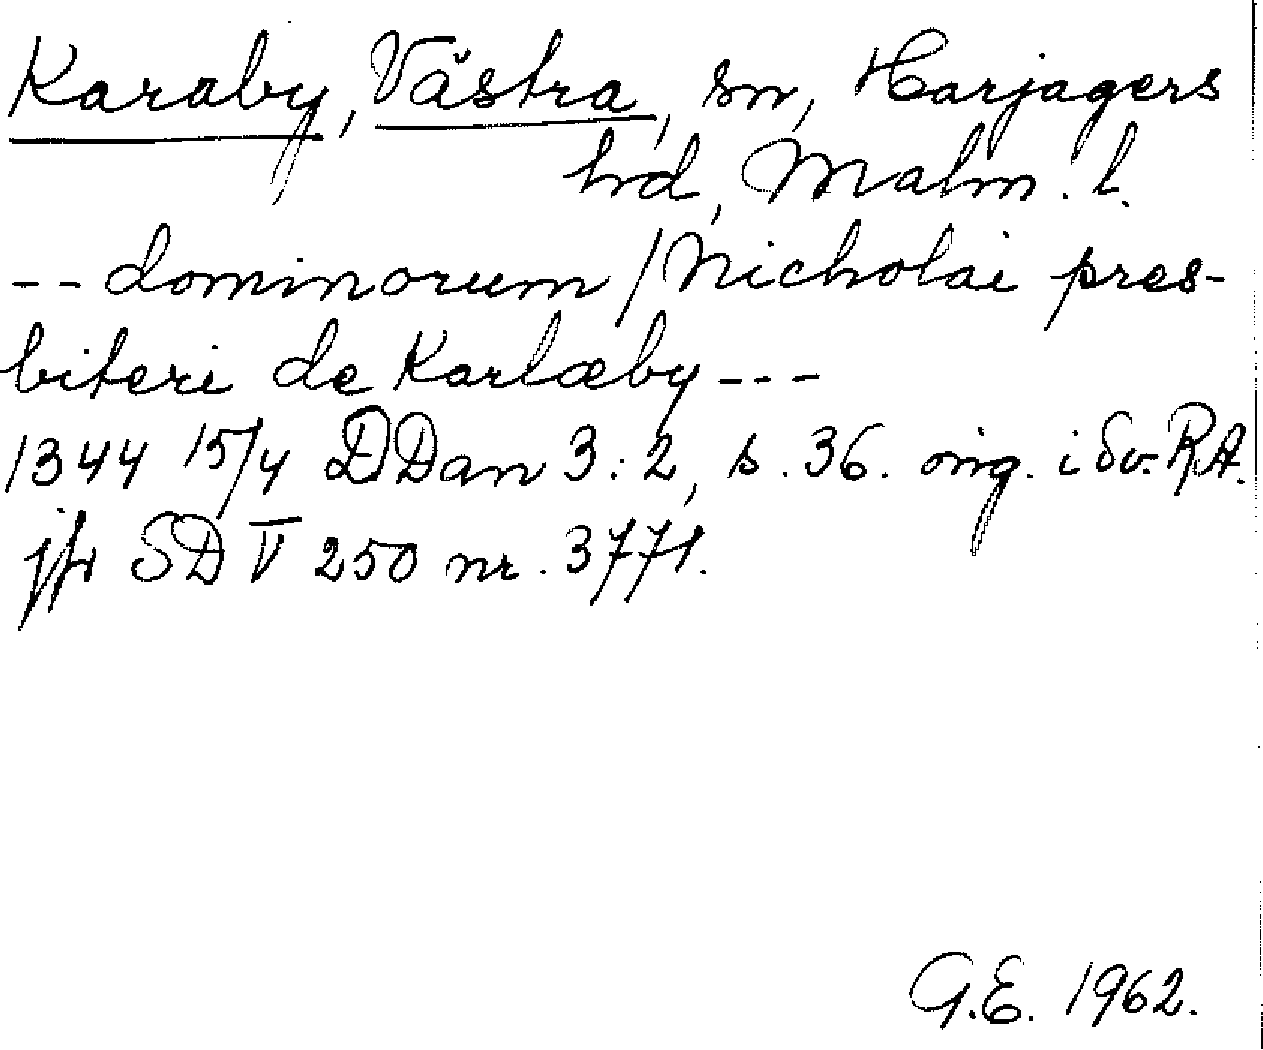 Karaby, Västra, sn, Harjagers
hd, Malm. l.
-- dominorum / Nicholai pres-
biteri de Karlæby ---
1344 15/4 DDan 3:2, s. 36. orig. i Sv. RA.
jfr SD V 250 nr. 3771.
G.E. 1962.